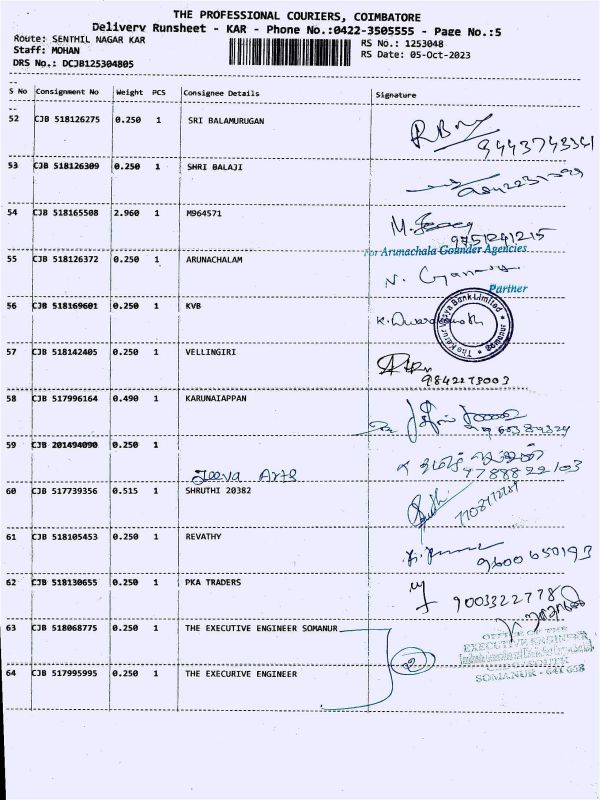 THE PROFESSIONAL COURIERS, COIMBATORE
Delivery Runsheet - KAR - Phone No.:0422-3505555 - Page No.:5
Route: SENTHIL NAGAR KAR
RS No.: 1253048
Staff: MOHAN
RS Date: 05-Oct-2023
DRS No.: DCJB125304805
S No Consignment No Weight PCS Consignee Details Signature
52 CJB 518126275 0.250 1 SRI BALAMURUGAN
9443743341
53 CJB 518126309 0.250 1 SHRI BALAJI
54 CJB 518165508 2.960 1 M964571
9751241215
For Arunachala Gounder Agencies
55 CJB 518126372 0.250 1 ARUNACHALAM
Partner
56 CJB 518169601 0.250 1 KVB
The Karur Vysya Bank Limited
57 CJB 518142405 0.250 1 VELLINGIRI
9842278003
58 CJB 517996164 0.490 1 KARUNAIAPPAN
59 CJB 201494090 0.250 1
Jeeva Arts
7788822103
60 CJB 517739356 0.515 1 SHRUTHI 20382
61 CJB 518105453 0.250 1 REVATHY
9600650193
62 CJB 518130655 0.250 1 PKA TRADERS
9003322778
63 CJB 518068775 0.250 1 THE EXECUTIVE ENGINEER SOMANUR
OFFICE OF THE
EXECUTIVE ENGINEER
2
SOMANUR - 641 668
64 CJB 517995995 0.250 1 THE EXECURIVE ENGINEER